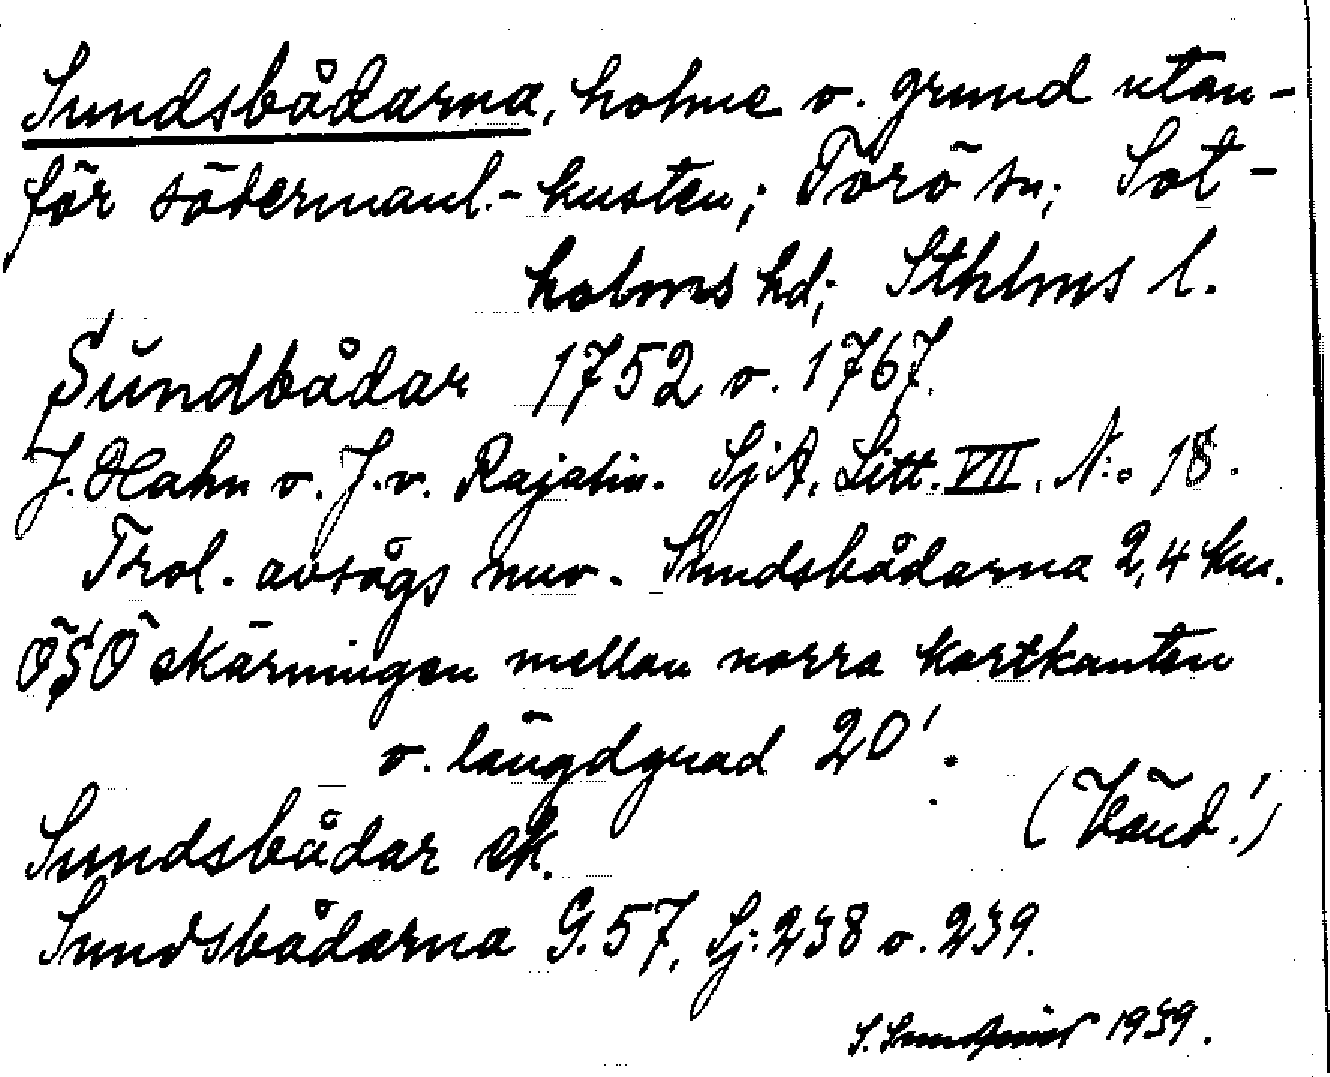 Sundsbådarna, holme o. grund utan-
för södermanl.-kusten; Torö sn; Sot-
holms hd; Sthlms l.
Sundbådar 1752 o. 1767.
J. Hahn o. J. v. Rajalin. SjA. Litt. VII, N:o 18.
Trol. avsågs nuv. Sundsbådarna 2,4 km.
ÖSÖ skärningen mellan norra kartkanten
o. längdgrad 20'.
(Vänd!)
Sundsbådar ek.
Sundsbådarna G. 57, Sj: 238 o. 239.
S. Sundquist 1939.